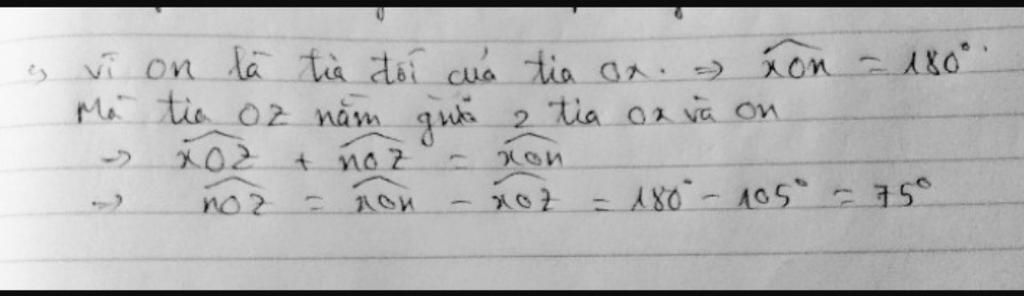 c, vì On là tia đối của tia Ox. => xÔn = 180°.
Mà tia Oz nằm giữa 2 tia Ox và On
-> xÔz + nÔz = xÔn
-> nÔz = xÔn - xÔz = 180° - 105° = 75°